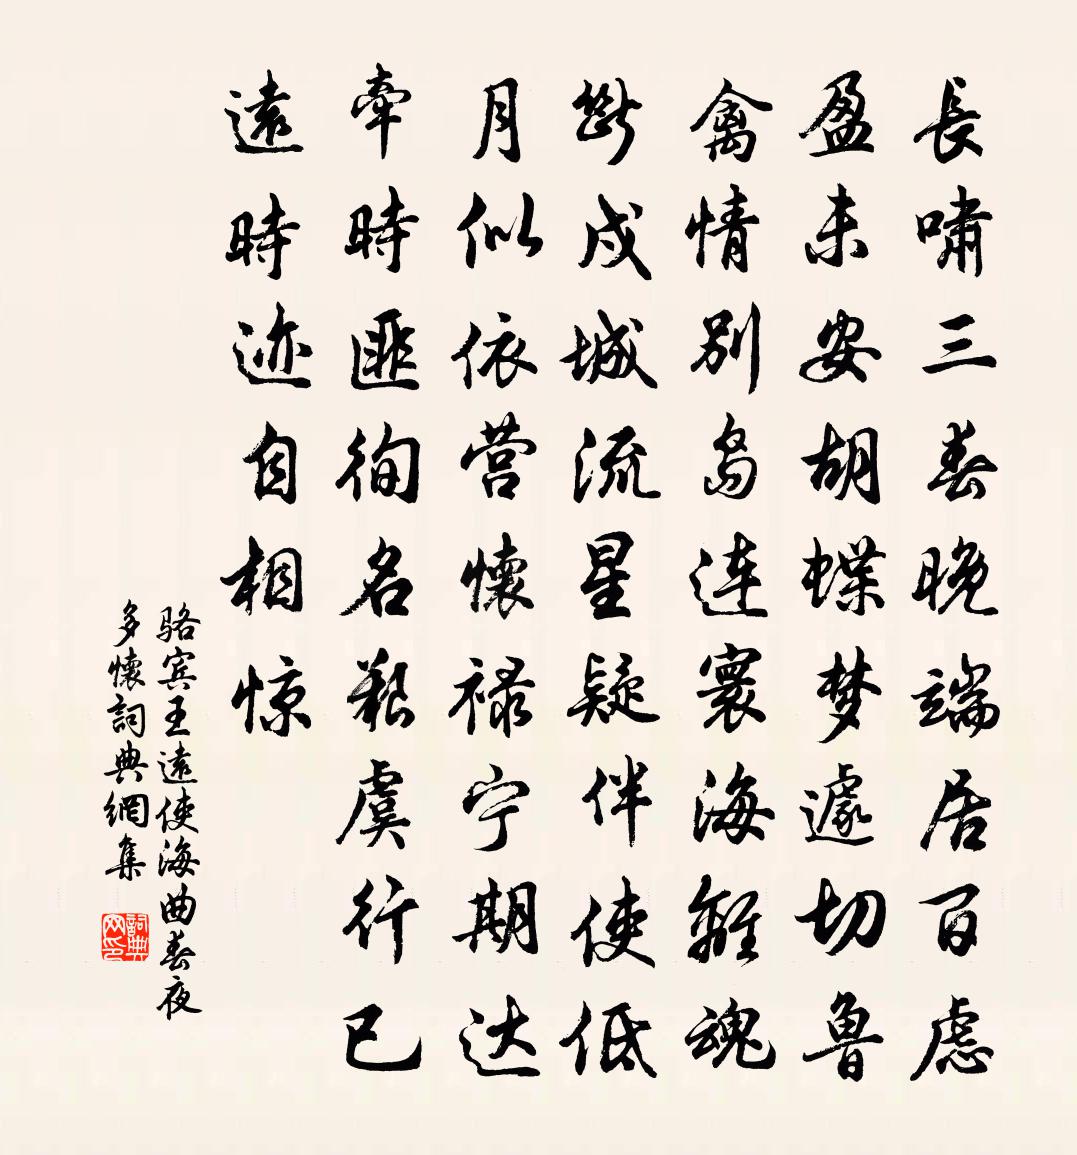 長嘯三春晚端居百慮
盈未安胡蝶梦遽切魯
禽情别岛连寰海離魂
斷戍城流星疑伴使低
月似依营懷禄宁期达
牽時匪徇名艱虞行已
遠時迹自相惊
骆宾王遠使海曲春夜
多懷詞典網集
詞典
网印